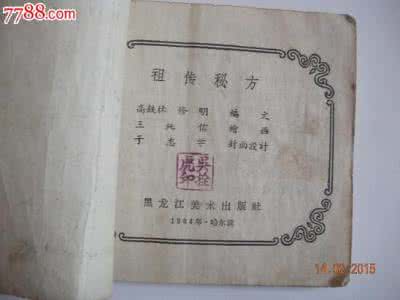 7788.com
祖传秘方
高鼓林 修明 编文
王纯信 绘画
于志学 封面设计
黑龙江美术出版社
1964年·哈尔滨
14.02.2015